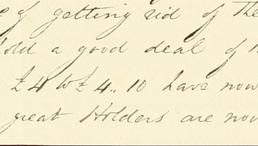 of getting rid of the
hold a good deal of
£4 to £4..10 have now
great Holders are now